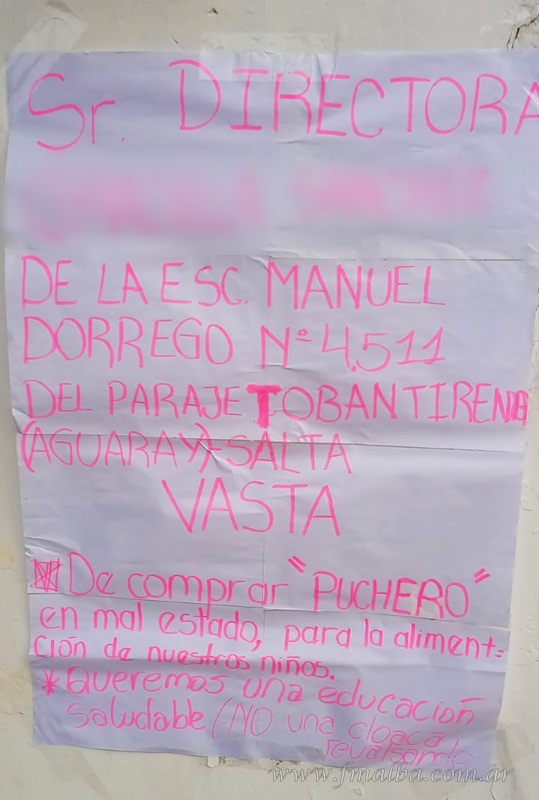 Sr. DIRECTORA
DE LA ESC. MANUEL
DORREGO Nº 4.511
DEL PARAJE TOBANTIRENDA
(AGUARAY)-SALTA
VASTA
De comprar "PUCHERO"
en mal estado, para la aliment=
ción de nuestros niños.
* Queremos una educación
Saludable (NO una cloaca
revalsando
www.fmalba.com.ar